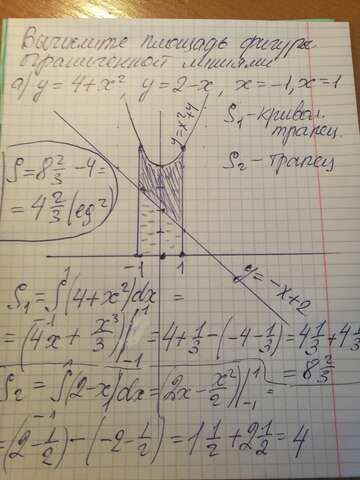 Вычислите площадь фигуры
ограниченной линиями
а) y = 4 + x² y = 2 - x, x = -1, x = 1
y = x² + 4
S₁ - кривол.
трапец.
S₂ - трапец
S = 8 2/3 - 4 =
= 4 2/3 (ед²)
-1 1
y = -x + 2
S₁ = ∫₋₁¹ (4 + x²) dx =
= (4x + x³/3) |₋₁¹ = 4 + 1/3 - (-4 - 1/3) = 4 1/3 + 4 1/3
= 8 2/3
S₂ = ∫₋₁¹ (2 - x) dx = (2x - x²/2) |₋₁¹ =
= (2 - 1/2) - (-2 - 1/2) = 1 1/2 + 2 1/2 = 4